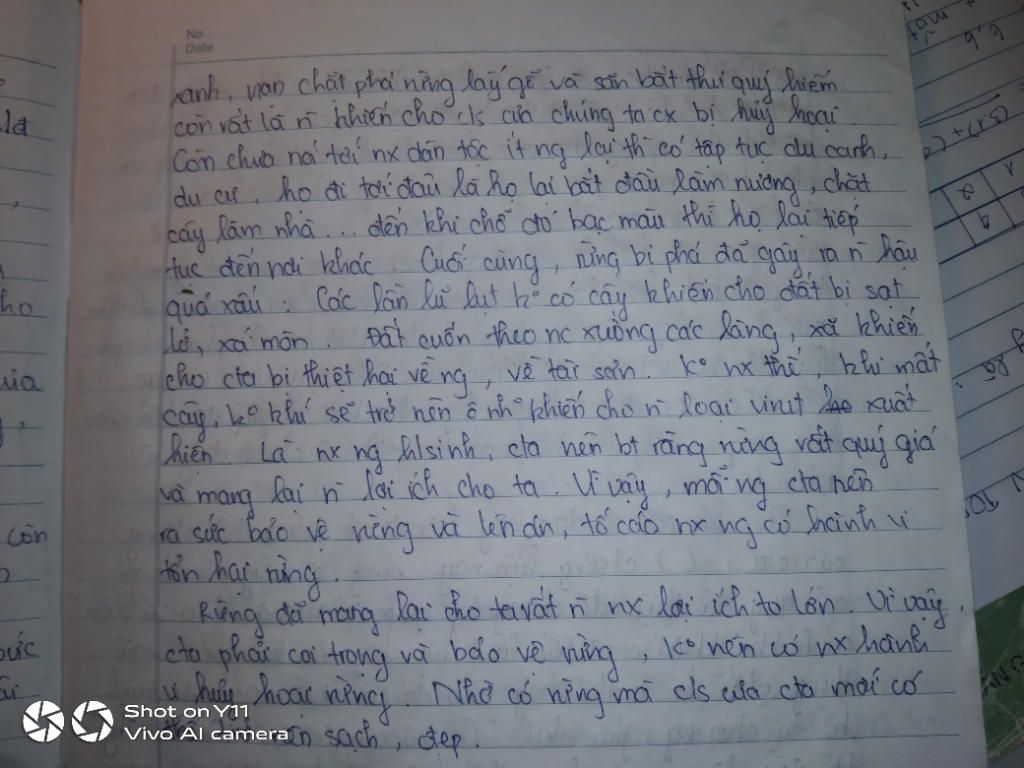 No.
Date
xanh, nạn chặt phá rừng lấy gỗ và săn bắt thú quý hiếm
còn rất là n̄ khiến cho c/s của chúng ta cx bị hủy hoại.
Còn chưa nói tới nx dân tộc ít ng lại thì có tập tục du canh,
du cư, họ đi tới đâu là họ lại bắt đầu làm nương, chặt
cây làm nhà... đến khi chỗ đó bạc màu thì họ lại tiếp
tục đến nơi khác. Cuối cùng, rừng bị phá đã gây ra n̄ hậu
quả xấu. Các lần lũ lụt kº có cây khiến cho đất bị sạt
lở, xói mòn. Đất cuốn theo nc xuống các làng, xã khiến
cho cta bị thiệt hại về ng, về tài sản. Kº nx thế, khi mất
cây, kº khí sẽ trở nên ô nhº khiến cho n̄ loại virut xuất
hiện. Là nx ng h/sinh, cta nên bt rằng rừng rất quý giá
và mang lại n̄ lợi ích cho ta. Vì vậy, mỗi ng cta nên
ra sức bảo vệ rừng và lên án, tố cáo nx ng có hành vi
tổn hại rừng.
Rừng đã mang lại cho ta rất n̄ nx lợi ích to lớn. Vì vậy,
cta phải coi trọng và bảo vệ rừng, kº nên có nx hành
vi hủy hoại rừng. Nhờ có rừng mà c/s của cta mới có
sạch, đẹp.
còn
ho
Shot on Y11
Vivo AI camera